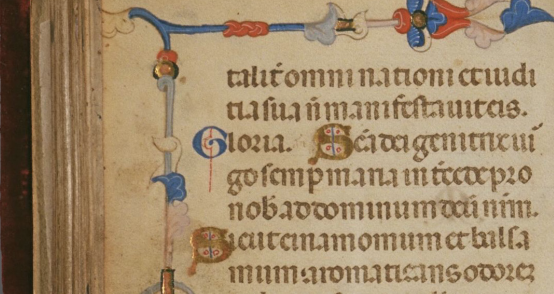 talit͛ omni nationi et iudi
tia sua ñ manifestavit eis.
Gloria. Sc̃a dei genitrix vi
go semp̱ maria intẽcede pro
nob̃ ad dominum deũ nr̃m.
Sicut cinamomum et balsa
mum aromatiçans odorez